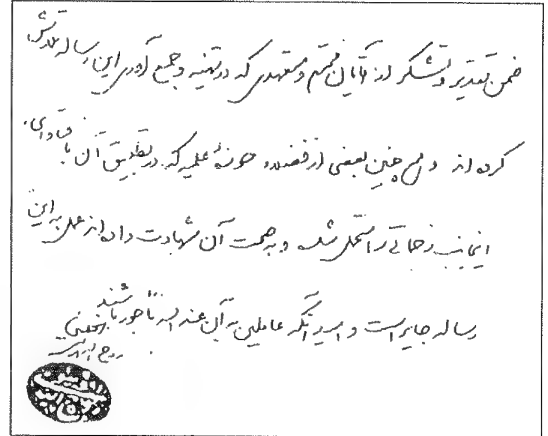 ضمن تقدیر و تشکر از آقایان محترم و متعهدی که در تهیه و جمع آوری این رساله تلاش
کرده‌اند و هم چنین بعضی از فضلاء حوزهٔ علمیه که در تطبیق آن با فتاوای
اینجانب زحماتی را متحمل شده و به صحت آن شهادت داده‌اند عمل به این
رساله جایز است و امید آنکه عاملین به آن عند الله مأجور باشند